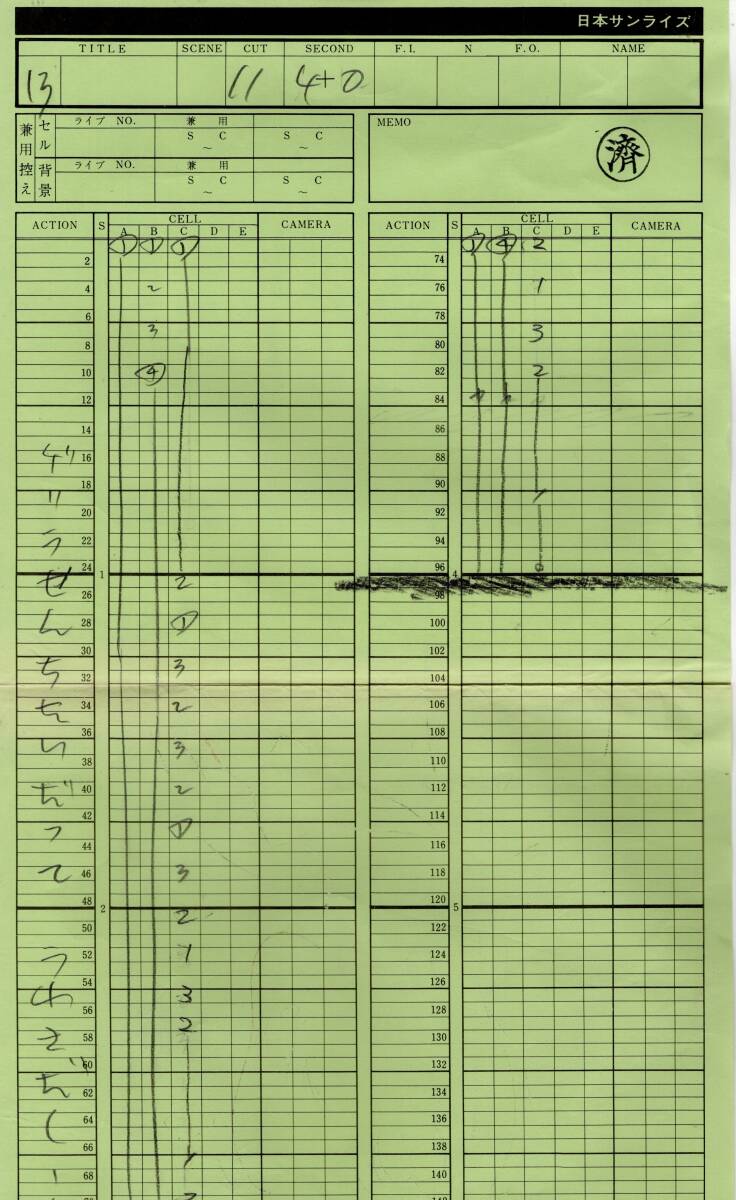 日本サンライズ
TITLE SCENE CUT SECOND F.I. N F.O. NAME
13 11 4+0
兼用控え
セル ライブ NO. 兼 用
S C S C
~ ~
背景 ライブ NO. 兼 用
S C S C
~ ~
MEMO
済
ACTION S CELL CAMERA
A B C D E
① ① ①
2
4 2
6
3
8
10 ④
12
14
16
18
20
22
24
1 2
26
28 ①
30
3
32
34 2
36
3
38
40 2
42
①
44
46 3
48
2 2
50
52 1
54
3
56
2
58
60
62
64
66
68
ACTION S CELL CAMERA
A B C D E
① ④ 2
74
76 1
78
3
80
82 2
84
86
88
90
92
94
96
4
98
100
102
104
106
108
110
112
114
116
118
120
5
122
124
126
128
130
132
134
136
138
140